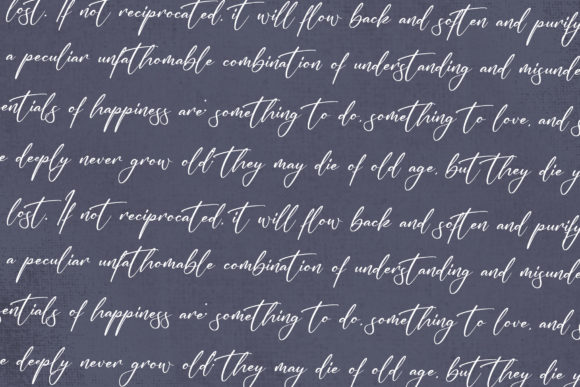 lost. If not reciprocated, it will flow back and soften and purify
a peculiar unfathomable combination of understanding and misunde
entials of happiness are: something to do, something to love, and s
e deeply never grow old they may die of old age, but they die y
lost. If not reciprocated, it will flow back and soften and purify
a peculiar unfathomable combination of understanding and misunde
sentials of happiness are: something to do, something to love, and s
e deeply never grow old they may die of old age, but they die y